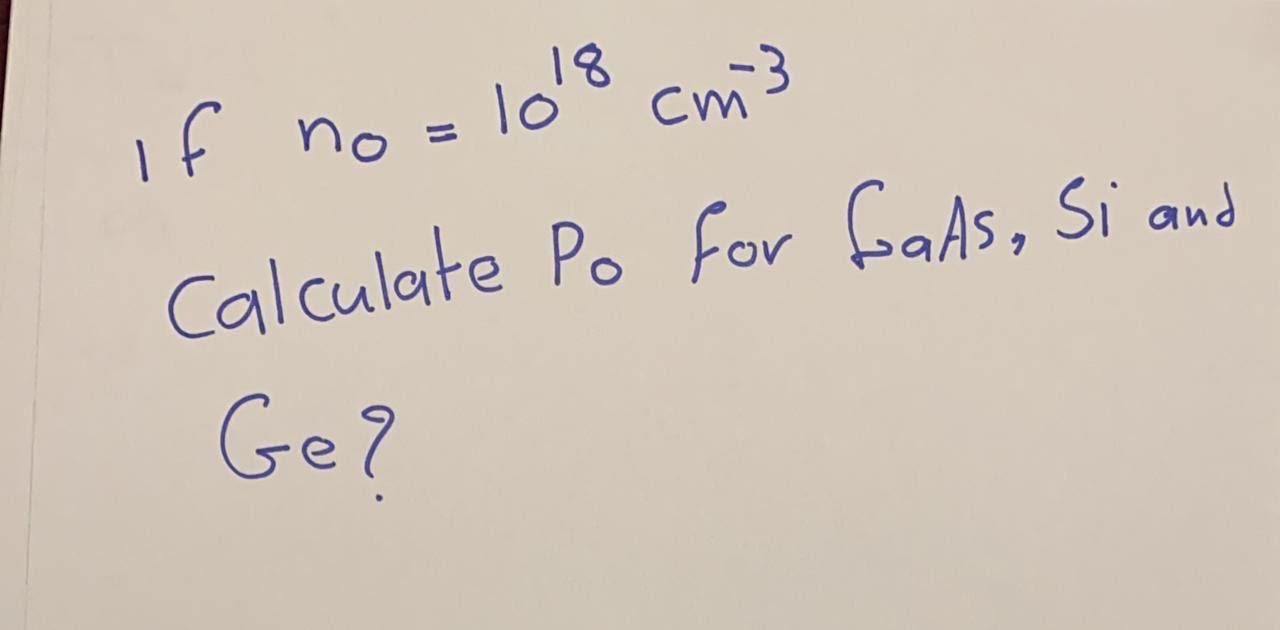 If n₀ = 10¹⁸ cm⁻³
Calculate P₀ for GaAs, Si and
Ge?